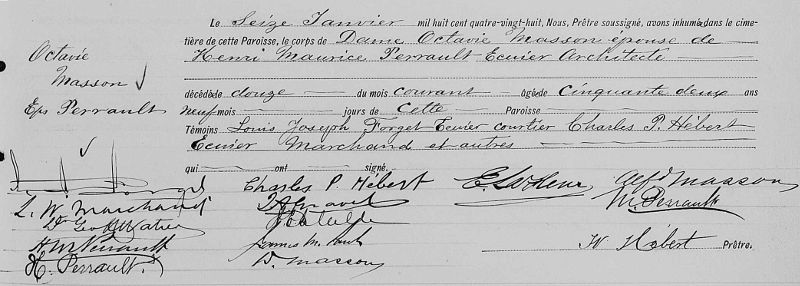 Octavie
Masson
Eps Perrault
Le Seize Janvier mil huit cent quatre-vingt-huit, Nous, Prêtre soussigné, avons inhumé dans le cime-
tière de cette Paroisse, le corps de Dame Octavie Masson épouse de
Henri Maurice Perrault Ecuier Architecte
décédée le douze du mois courant âgée de Cinquante deux ans
neuf mois jours de Cette Paroisse
Témoins Louis Joseph Forget Ecuier courtier Charles P. Hébert
Ecuier Marchand et autres
qui ont signé.
Charles P. Hébert
Alfd Masson
L. W. Marchand
M. Perrault
H. Perrault
D. Masson
H Hébert Prêtre.